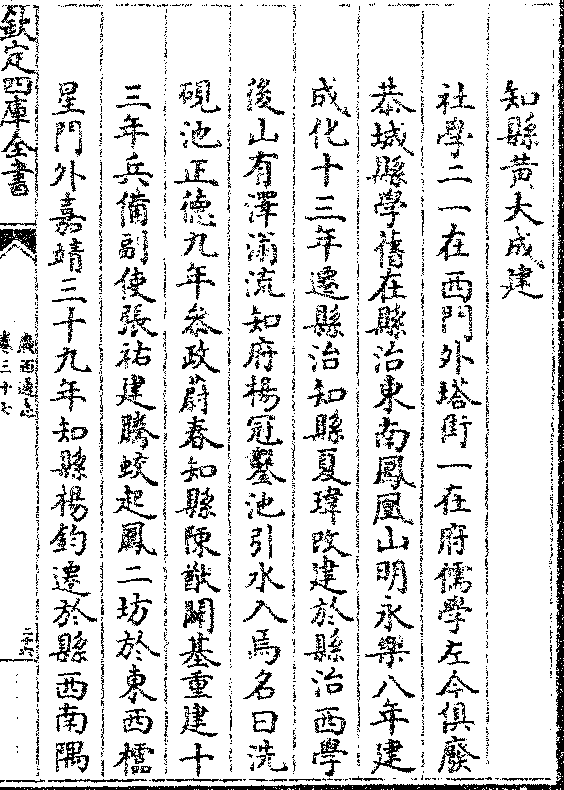 知縣黄大成建
社學二一在西門外塔街一在府儒學左今俱廢
恭城縣學舊在縣治東南鳳凰山明永樂八年建
成化十三年遷縣治知縣夏瑋改建於縣治西學
後山有澤湧流知府楊冠鑿池引水入焉名曰洗
硯池正德九年叅政蔚春知縣陳猷闢基重建十
三年兵備副使張祐建騰蛟起鳳二坊於東西櫺
星門外嘉靖三十九年知縣楊鈞遷於縣西南隅
欽定四庫全書
廣西通志
卷三十七
二十六